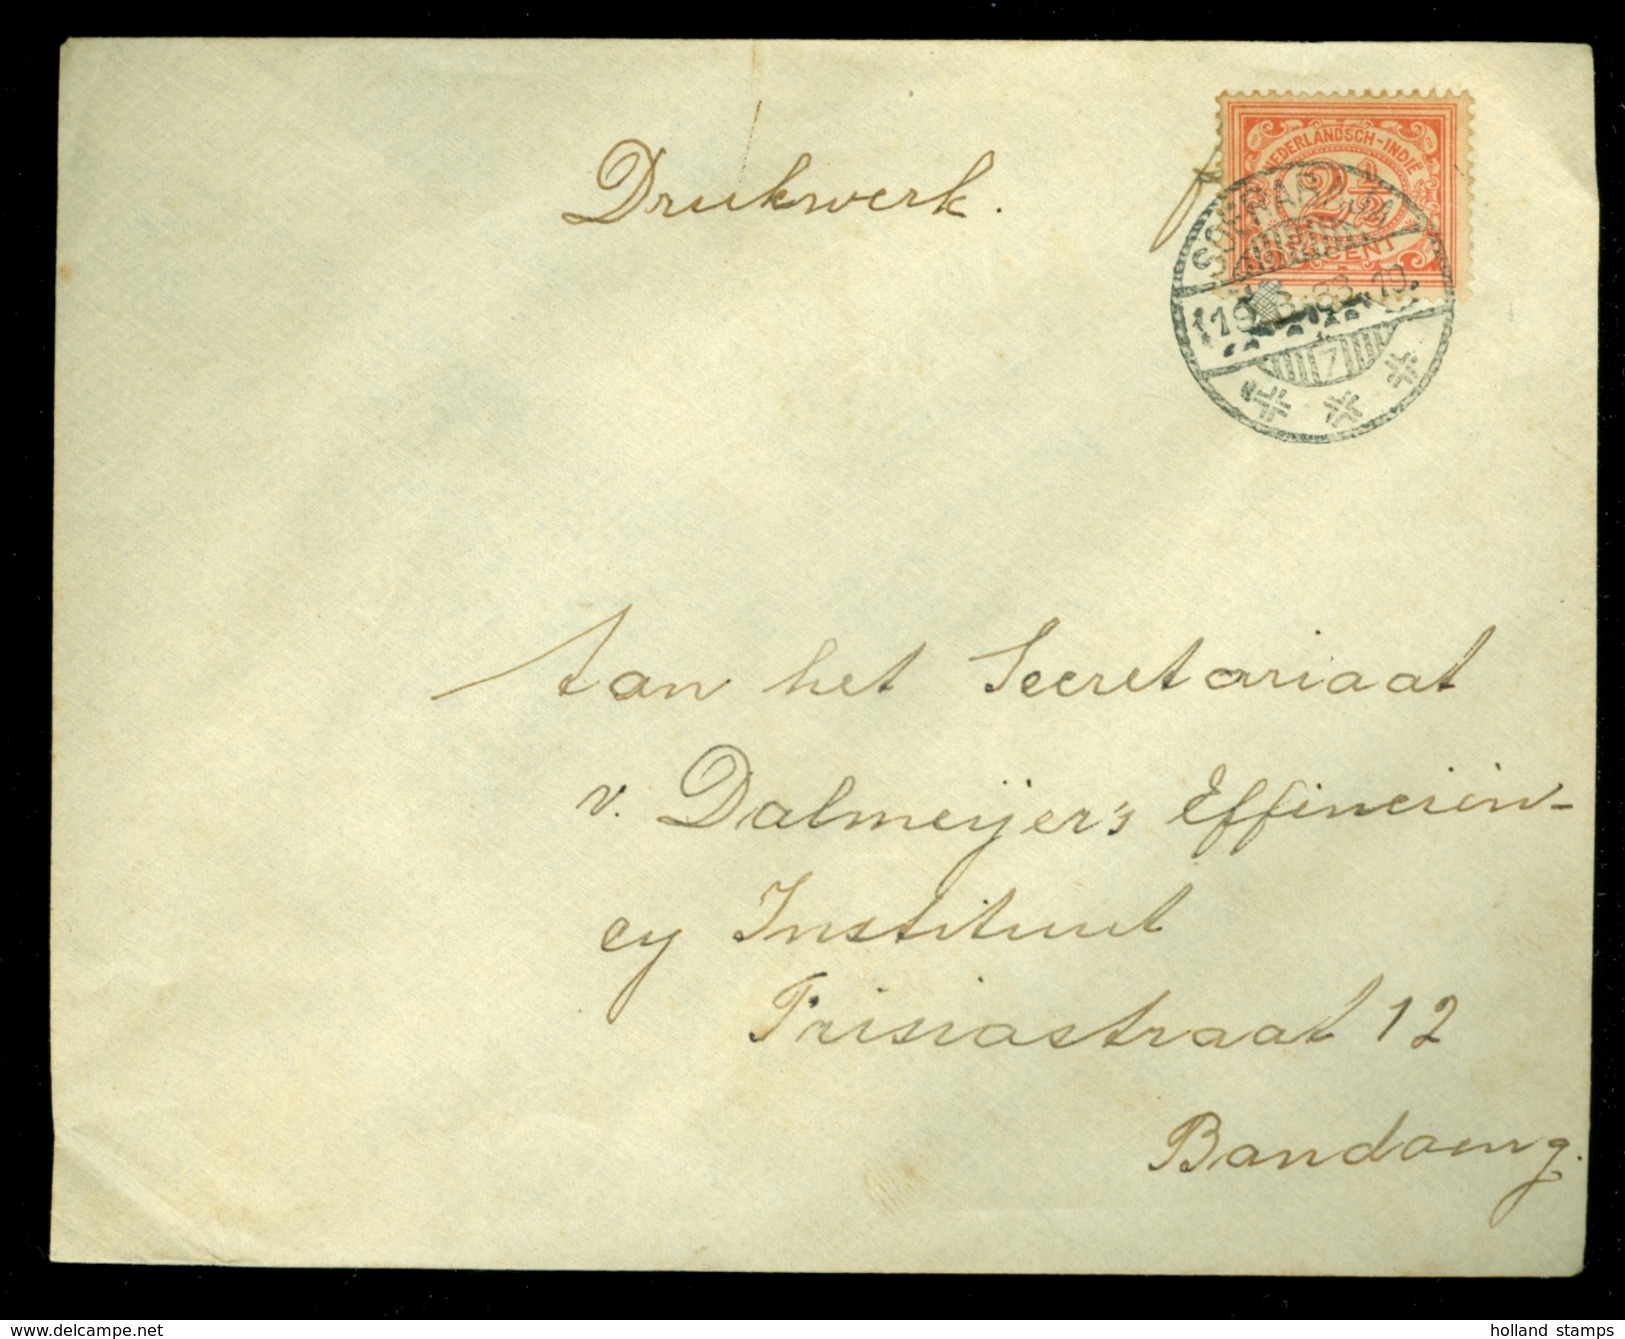 Drukwerk.
NEDERLANDSCH-INDIË
2½
CENT
SOERABAJA
7
Aan het Secretariaat
v. Dalmeijer's Effinciën-
cy Instituut
Frisiastraat 12
Bandoeng.
www.delcampe.net
holland_stamps